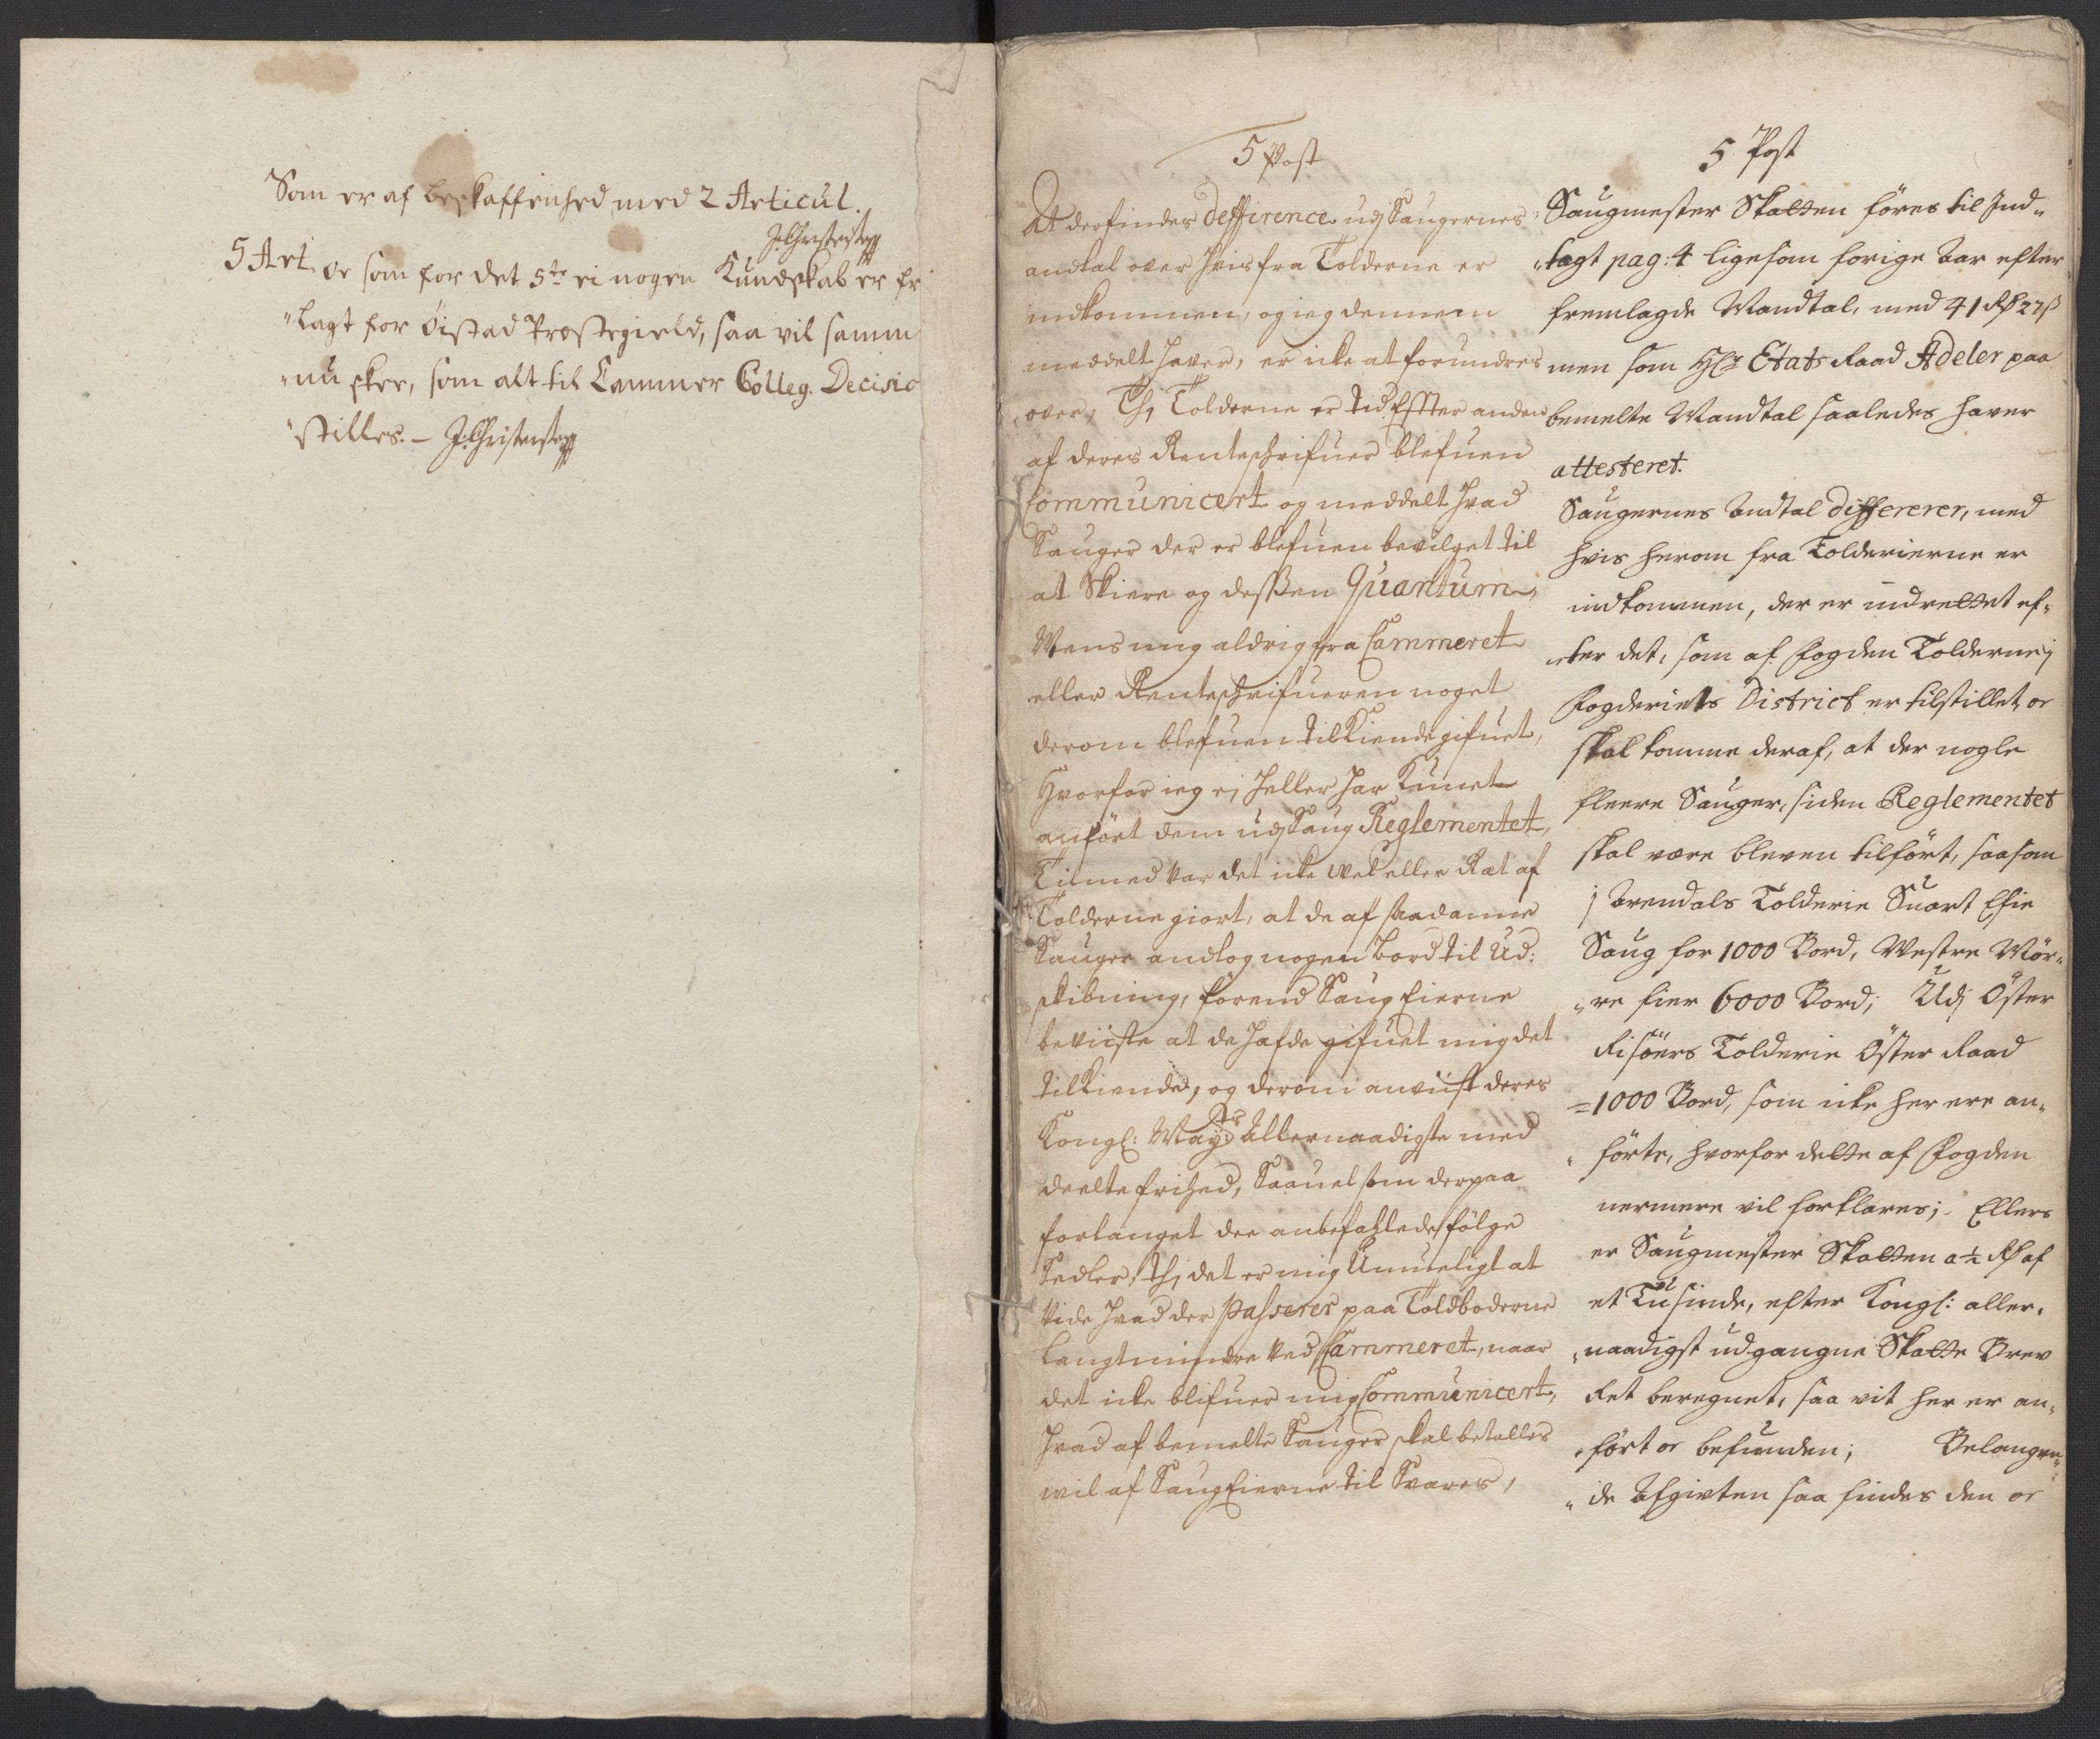 Som er af beskaffenhed med 2 Articul.
JChristensen
5 Art. Og som for det 5te ei nogen Kundskab er fr
"lagt for Öistad Præstegield, saa vil samm
"nu skee, som alt til Cammer Colleg. Decisio
"stilles. – JChristensen
5 Post
At der findes defference udj Saugernes
andtal over hvis fra Tolderne er
indkommen, og ieg dennem
meddelt haver, er icke at forundres
over, Thj Tolderne er tid Effter anden
af deres Renteschrifuer blefuen
Communicert og meddelt hvad
Sauger der er blefuen bevilget til
at Skiere og dessen Quantum,
Mens mig aldrig fra Cammeret
eller Renteschrifueren noget
derom blefuen tilkiende gifuet,
Hvorfor ieg ej heller har kunet
anfört dem udj Saug Reglementet,
Tilmed var det icke vel eller Ræt af
Tolderne giort, at de af saadanne
Sauger andtog nogen bord til Ud:
skibning, förend Saug Eierne
beviiste at de hafde gifuet mig det
tilkiende, og derom anviist deres
Kongl: Mayts Allernaadigste med
deelte frihed, Saavel som derpaa
forlanget dee anbefahlede fölge
Sedler, thj det er mig Umueligt at
vide hvad der passerer paa Toldboderne
langt mindre ved Cammeret, naar
det icke blifuer mig Communicert,
hvad af bemelte Sauger skal betalles
vil af Saug Eierne til Svares,
5 Post
Saugmester Skatten föres til Ind„
„tagt pag: 4 ligesom forige Aar efter
fremlagde Mandtal, med 41 Rd 27 s
men som Hr Etats Raad Adeler paa
bemelte Mandtal saaledes haver
attesteret.
Saugernes Andtal differerer, med
hvis herom fra Tolderierne er
indkommen, der er indrettet ef„
„ter det, som af Fogden Tolderne j
Fogderiets District er tilstillet og
skal komme deraf, at der nogle
fleere Sauger, siden Reglementet
skal være bleven tilfört, saasom
j Arendals Tolderie Suart Efie
Saug for 1000 Bord, Vestre Mör„
„re fier 6000 Bord; Udj Öster
Risöers Tolderie Öster Raad
1000 Bord, som icke her ere an„
„förte, hvorfor dette af Fogden
nermere vil forklares; Ellers
er Saugmester Skatten a ½ Rd af
et Tusinde, efter Kongl: aller„
„naadigst udgangne Skatte Brev
Ret beregnet, saa vit her er an„
„fört og befunden; Belangen„
„de Afgivten saa findes den og